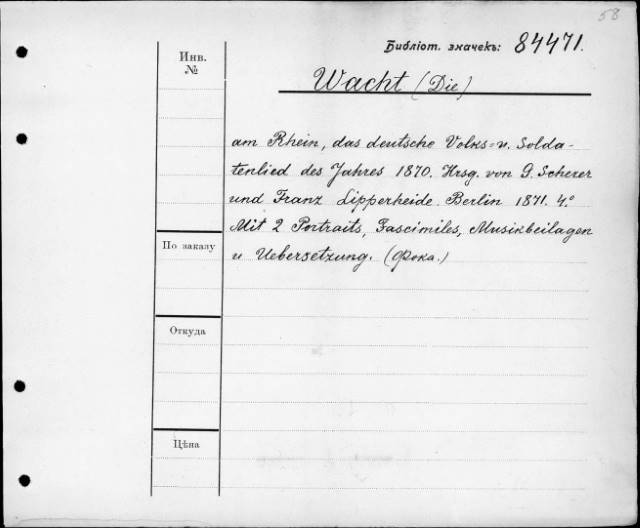 58
Библіот. значекъ: 84471.
Инв.
№
Wacht (Die)
am Rhein, das deutsche Volks= u. Solda-
tenlied des Jahres 1870. Hrsg. von G. Scherer
und Franz Lipperheide. Berlin 1871. 4.°
Mit 2 Portraits, Fascimiles, Musikbeilagen
u Uebersetzung. (Фока.)
По заказу
Откуда
Цѣна